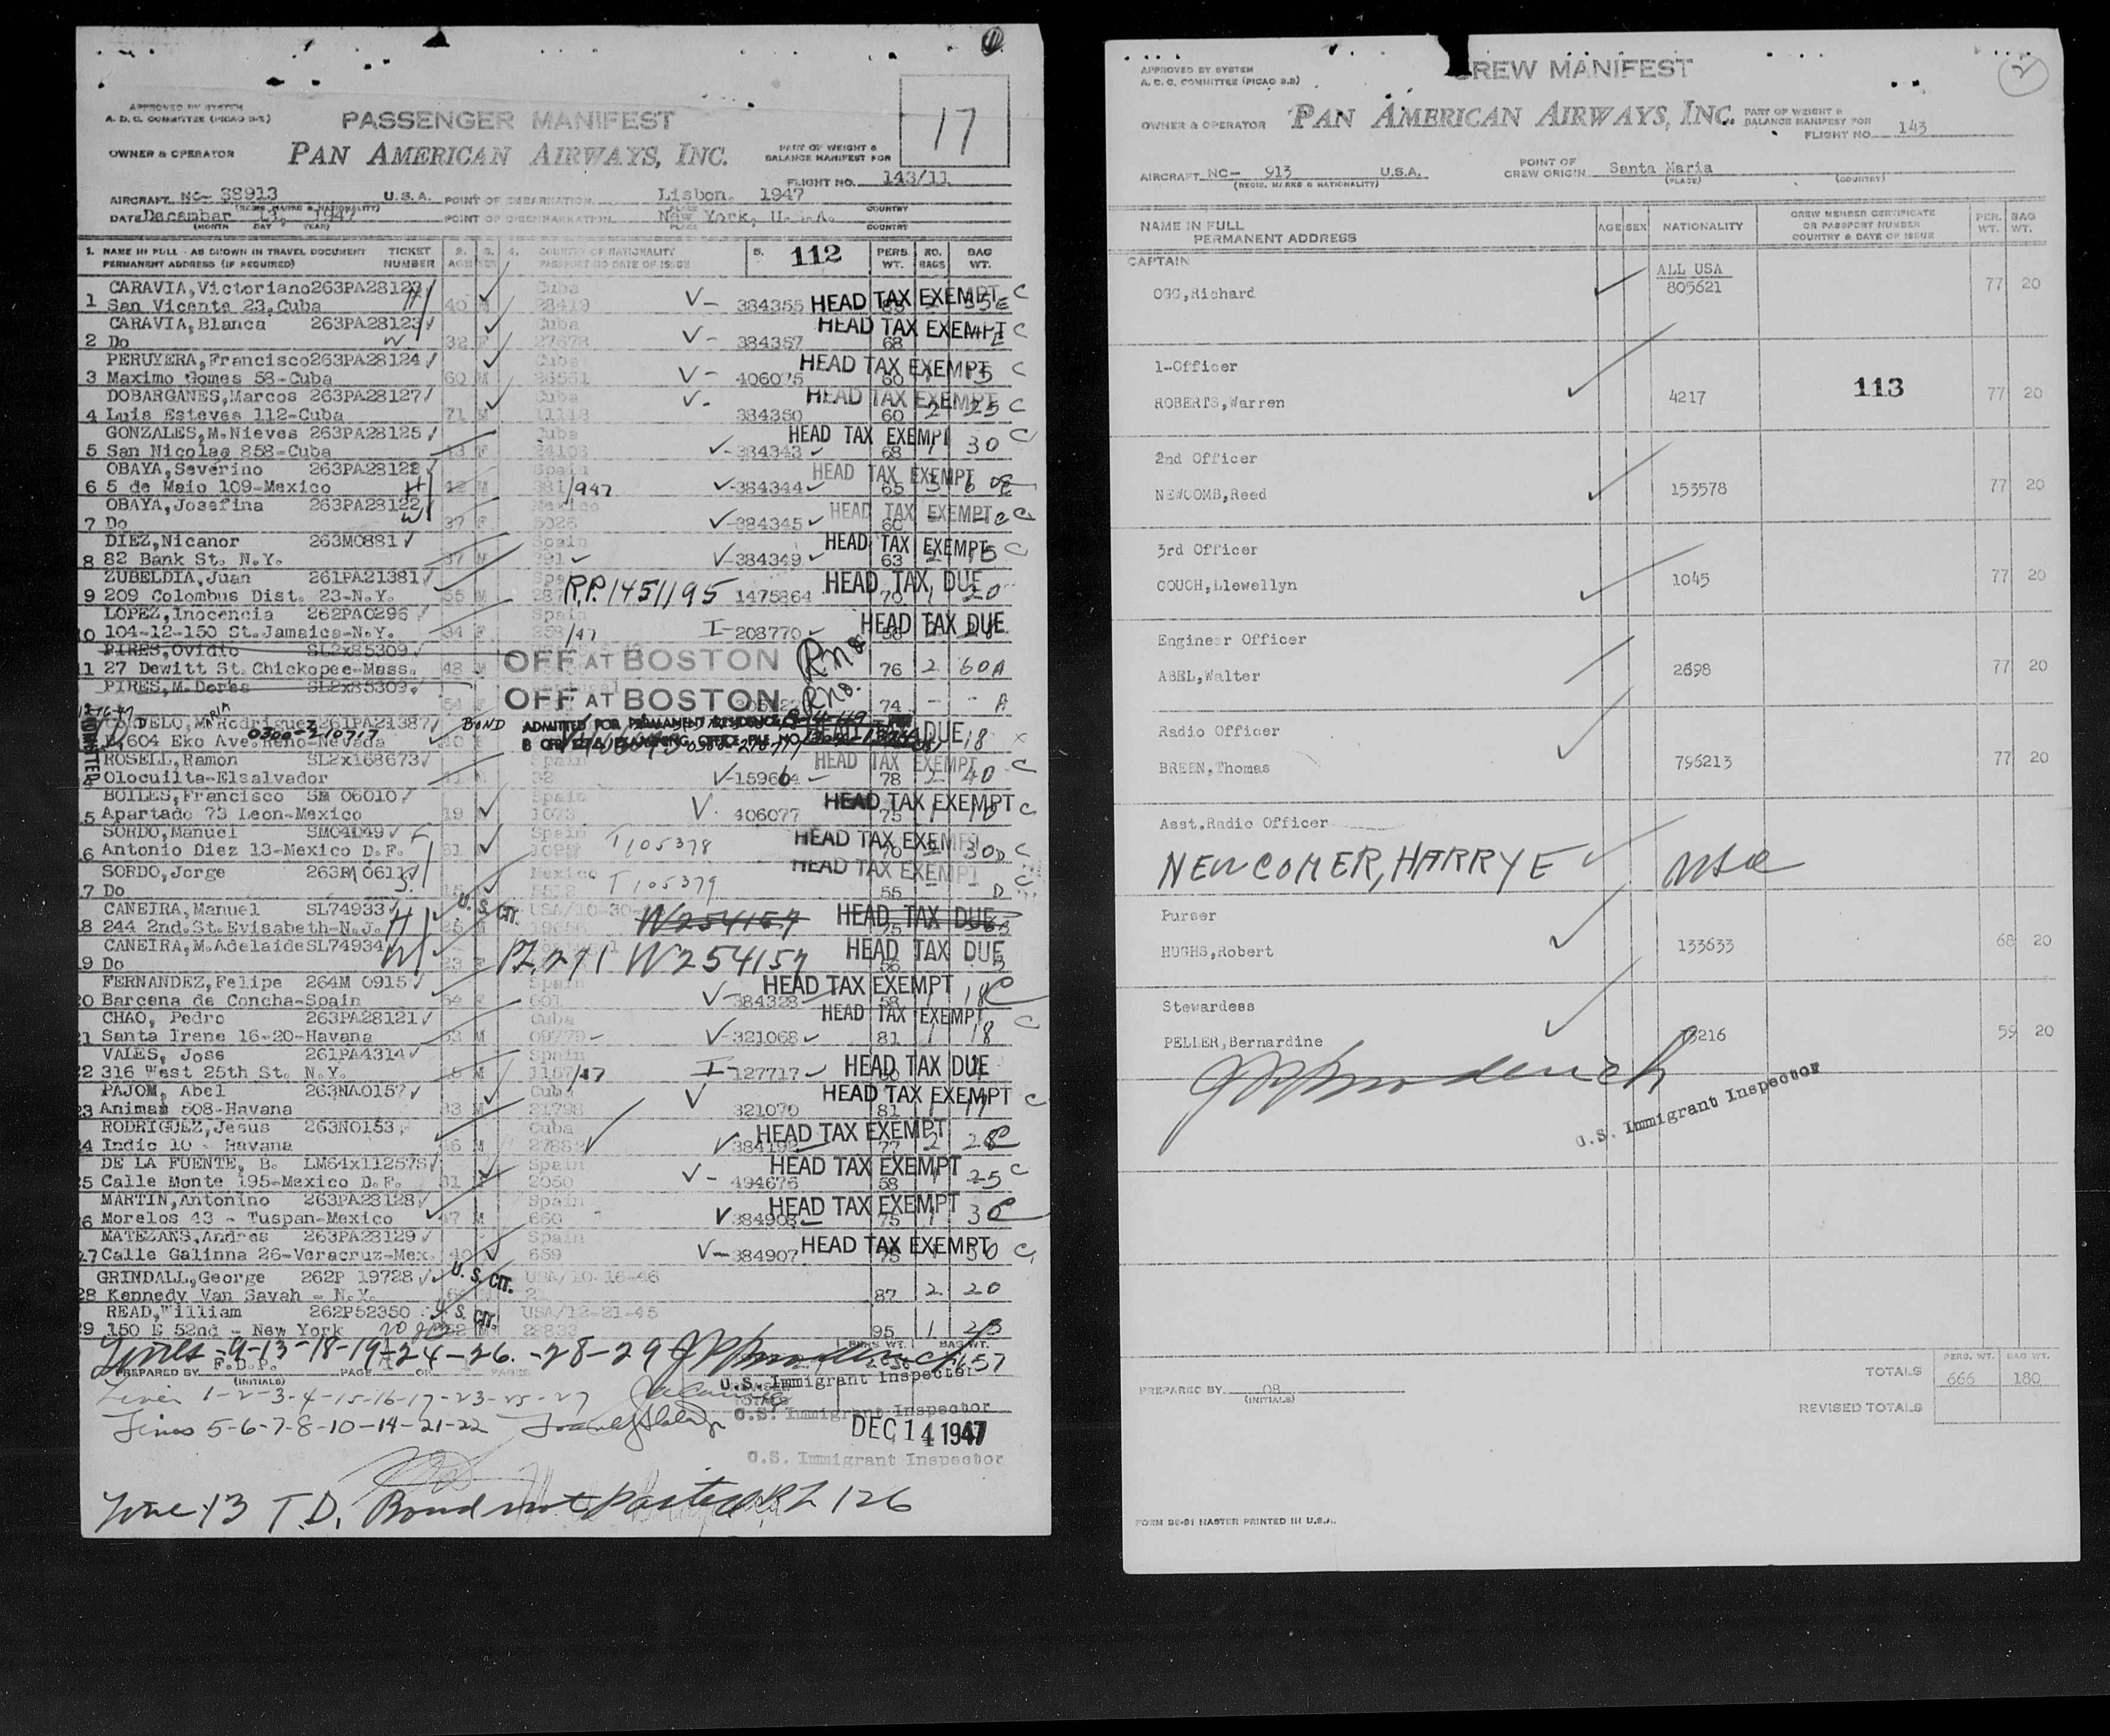 17
APPROVED BY SYSTEM
A. D. C. COMMITTEE (PICAO B-2)
PASSENGER MANIFEST
OWNER & OPERATOR PAN AMERICAN AIRWAYS, INC.
PART OF WEIGHT &
BALANCE MANIFEST FOR
FLIGHT NO. 143/11
AIRCRAFT NC- 88913 U.S.A. POINT OF EMBARKATION Lisbon. 1947
(REGIS. MARKS & NATIONALITY) PLACE COUNTRY
DATE December 13, 1947 POINT OF DISEMBARKATION New York, U.S.A.
(MONTH DAY YEAR) PLACE COUNTRY
1. NAME IN FULL - AS SHOWN IN TRAVEL DOCUMENT TICKET 2. 3. 4. COUNTRY OF NATIONALITY 5. 112 PERS. NO. BAG
PERMANENT ADDRESS (IF REQUIRED) NUMBER AGE SEX PASSPORT NO DATE OF ISSUE WT. BAGS WT.
CARAVIA, Victoriano 263PA28123 Cuba
1 San Vicente 23, Cuba 40 M 28419 V- 384355 HEAD TAX EXEMPT C
CARAVIA, Blanca 263PA28123 Cuba HEAD TAX EXEMPT C
2 Do W 32 F 27678 V- 384357 68
PERUYERA, Francisco 263PA28124 Cuba HEAD TAX EXEMPT C
3 Maximo Gomes 58-Cuba 60 M 26561 V- 406075 60 15
DOBARGANES, Marcos 263PA28127 Cuba HEAD TAX EXEMPT
4 Luis Esteves 112-Cuba 71 M 11113 V- 384350 60 2 25 C
GONZALES, M. Nieves 263PA28125 Cuba HEAD TAX EXEMPT
5 San Nicolas 858-Cuba 43 F 24103 V-384343 68 1 30 C
OBAYA, Severino 263PA28122 Spain HEAD TAX EXEMPT
6 5 de Maio 109-Mexico H 42 M 381/947 V-384344 65 3
OBAYA, Josefina 263PA28122 Mexico HEAD TAX EXEMPT C
7 Do W 37 F 5026 V-384345 60
DIEZ, Nicanor 263M0881 Spain HEAD TAX EXEMPT C
8 82 Bank St. N.Y. 37 M 391 V-384349 63 2 15
ZUBELDIA, Juan 261PA21381 HEAD TAX DUE
9 209 Colombus Dist. 23-N.Y. 55 M R.P. 1451195 1475864 70 1 20
LOPEZ, Inocencia 262PA0296 Spain HEAD TAX DUE
10 104-12-150 St. Jamaica-N.Y. 34 F 258/47 I-208770
PIRES, Ovidio SL2x85309 OFF AT BOSTON
11 27 Dewitt St. Chickopee-Mass. 48 M 76 2 60 A
PIRES, M. Dores SL2x85309 OFF AT BOSTON
74 - - A
261PA21387 BOND ADMITTED FOR PERMANENT RESIDENCE
0300-210717
604 Eko Ave. Reno-Nevada DUE 18
ADMITTED
ROSELL, Ramon SL2x168673 Spain HEAD TAX EXEMPT
Olocuilta-Elsalvador 41 M 32 V-159664 78 2 40 C
BOILES, Francisco SM 06010 Spain HEAD TAX EXEMPT C
15 Apartado 73 Leon-Mexico 19 1073 V. 406077 75 1 18
SORDO, Manuel SM04149 Spain HEAD TAX EXEMPT
16 Antonio Diez 13-Mexico D.F. 31 T 105378 70 2 30 D C
SORDO, Jorge Mexico HEAD TAX EXEMPT
17 Do 15 5512 T 105379 55 D
CANEIRA, Manuel SL74933 U.S. CIT. USA/10-30- HEAD TAX DUE
18 244 2nd. St. Evisabeth-N.J. H 25 M W254157 75
CANEIRA, M. Adelaide SL74934 HEAD TAX DUE
19 Do W 23 F P.L. 271 W254157 56
FERNANDEZ, Felipe 264M 0915 Spain HEAD TAX EXEMPT
20 Barcena de Concha-Spain 54 601 V-384328 58 1 18 C
CHAO, Pedro 263PA28121 Cuba HEAD TAX EXEMPT C
21 Santa Irene 16-20-Havana 53 M 09779 V-321068 81 1 18
VALES, Jose 261PA4314 Spain HEAD TAX DUE
22 316 West 25th St. N.Y. M 1167/47 I-127717
PAJOM, Abel 263NA0157 Cuba HEAD TAX EXEMPT C
23 Animas 508-Havana 33 M 21798 V 321070 81 1 17
RODRIGUEZ, Jesus 263N0153 Cuba HEAD TAX EXEMPT
24 Indio 10 - Havana 46 M V 384192 77 2 28 C
DE LA FUENTE, B. LM64x112575 Spain HEAD TAX EXEMPT
25 Calle Monte 195-Mexico D.F. 31 2050 V- 494676 58 1 25 C
MARTIN, Antonino 263PA28128 Spain HEAD TAX EXEMPT
26 Morelos 43 - Tuspan-Mexico 47 M 660 V 384908 75 1 30 C
MATEZANS, Andres 263PA28129 Spain HEAD TAX EXEMPT
27 Calle Galinna 26-Veracruz-Mex. 40 659 V-384907 75 30 C
GRINDALL, George 262P 19728 U.S. CIT. USA/10-16-46
28 Kennedy Van Savah - N.Y. 87 2 20
READ, William 262P52350 U.S. CIT. USA/12-21-45
29 150 E 52nd - New York 52 M 95 1 23
Lines -9-13-18-19-24-26.-28-29
PREPARED BY F.D.P. PAGE 1 OF 1 PAGES
(INITIALS)
U.S. Immigrant Inspector
Lines 1-2-3-4-15-16-17-23-25-27
U.S. Immigrant Inspector
Lines 5-6-7-8-10-14-21-22
DEC 14 1947
U.S. Immigrant Inspector
Line 13 T.D. Bond not posted P.L 126
2
APPROVED BY SYSTEM
A. D. C. COMMITTEE (PICAO B-3)
CREW MANIFEST
OWNER & OPERATOR PAN AMERICAN AIRWAYS, INC.
PART OF WEIGHT &
BALANCE MANIFEST FOR
FLIGHT NO. 143
AIRCRAFT NC- 913 U.S.A. POINT OF CREW ORIGIN Santa Maria
(REGIS. MARKS & NATIONALITY) (PLACE) (COUNTRY)
NAME IN FULL PERMANENT ADDRESS AGE SEX NATIONALITY CREW MEMBER CERTIFICATE OR PASSPORT NUMBER COUNTRY & DATE OF ISSUE PER. WT. BAG WT.
CAPTAIN ALL USA
OGG, Richard 805621 77 20
1-Officer
ROBERTS, Warren 4217 113 77 20
2nd Officer
NEWCOMB, Reed 153578 77 20
3rd Officer
COUCH, Llewellyn 1045 77 20
Engineer Officer
ABEL, Walter 2698 77 20
Radio Officer
BREEN, Thomas 796213 77 20
Asst. Radio Officer
NEWCOMER, HARRY E USA
Purser
HUGHS, Robert 133633 68 20
Stewardess
PELLER, Bernardine 59 20
U.S. Immigrant Inspector
PERS. WT. BAG WT.
TOTALS 666 180
PREPARED BY 08
(INITIALS)
REVISED TOTALS
FORM BE-91 MASTER PRINTED IN U.S.A.